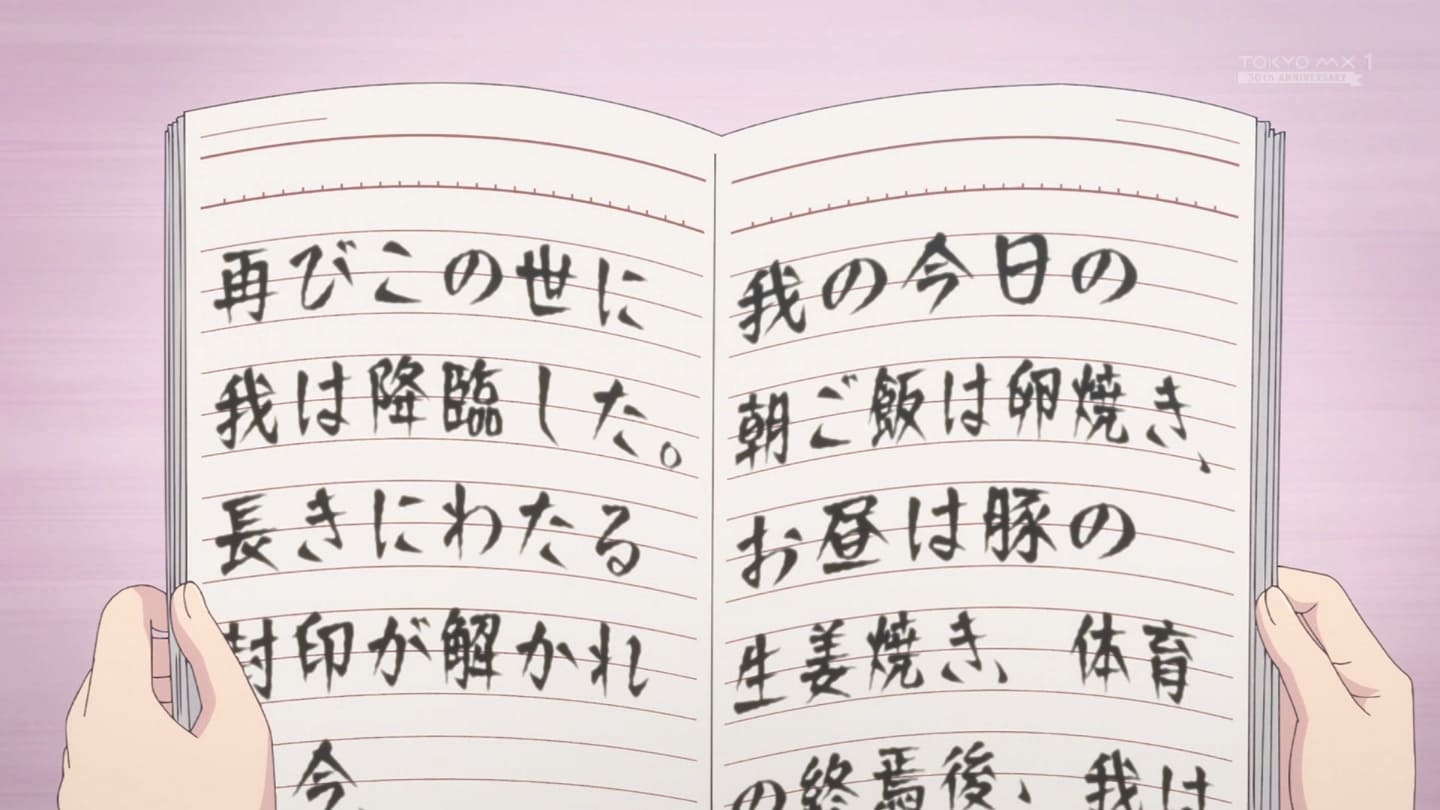 TOKYO MX 1
50th ANNIVERSARY
再びこの世に
我は降臨した。
長きにわたる
封印が解かれ
今、
我の今日の
朝ご飯は卵焼き、
お昼は豚の
生姜焼き、体育
の終焉後、我は